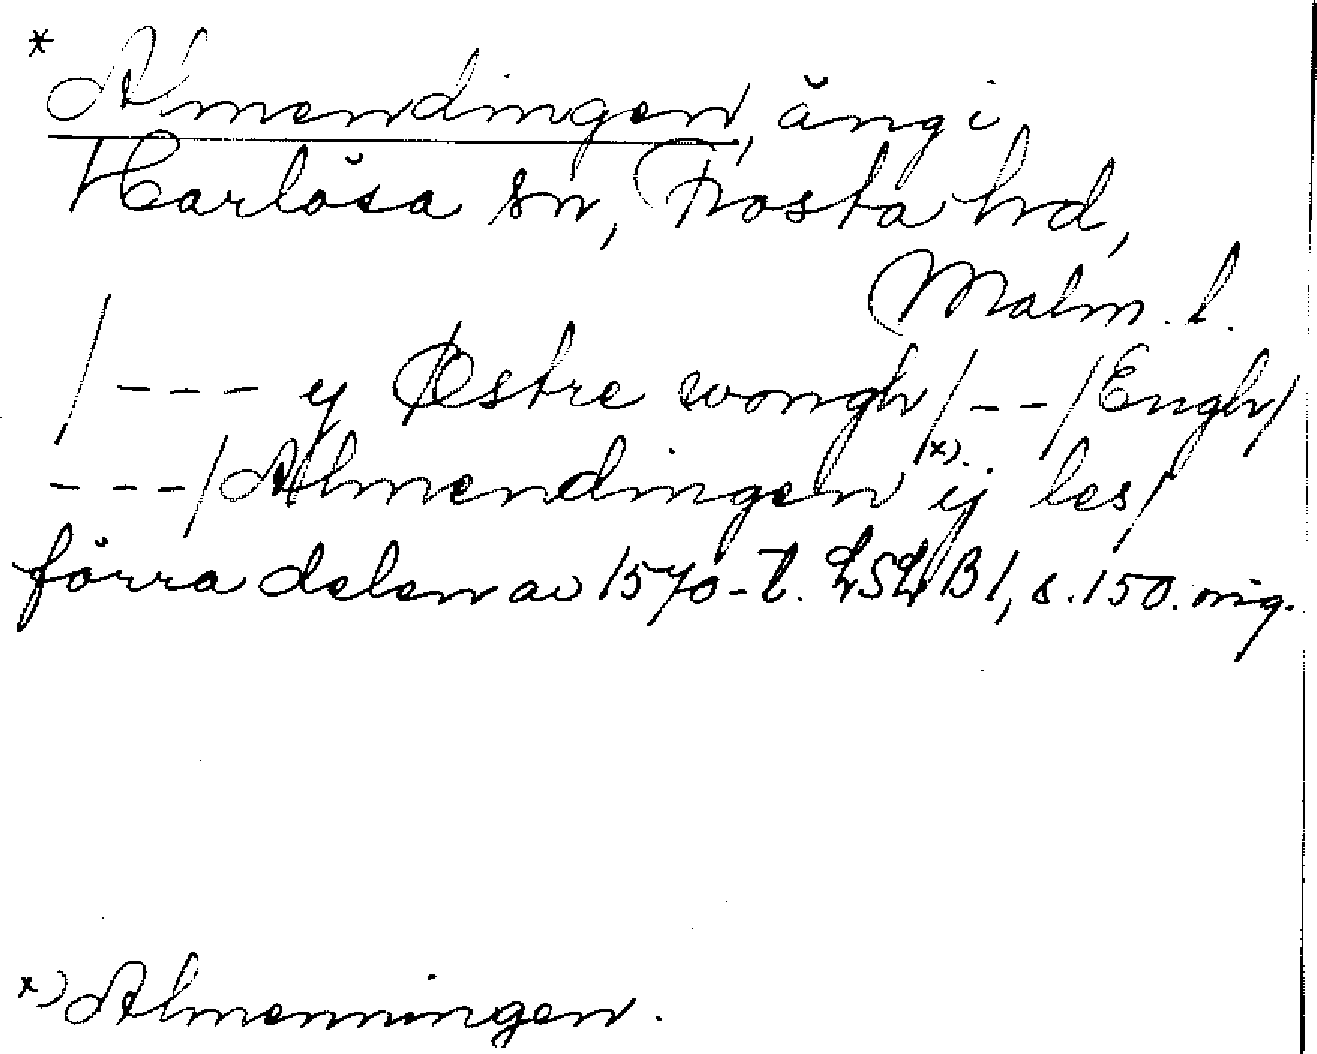 * Almendingen, äng i
Harlösa sn, Frosta hd,
Malm. l.
/--- y Østre wongh/--/Engh/
---/Almendingen x) ij les/
förra delen av 1570-t. LSLB1, s. 150. orig.
x) Almenningen.